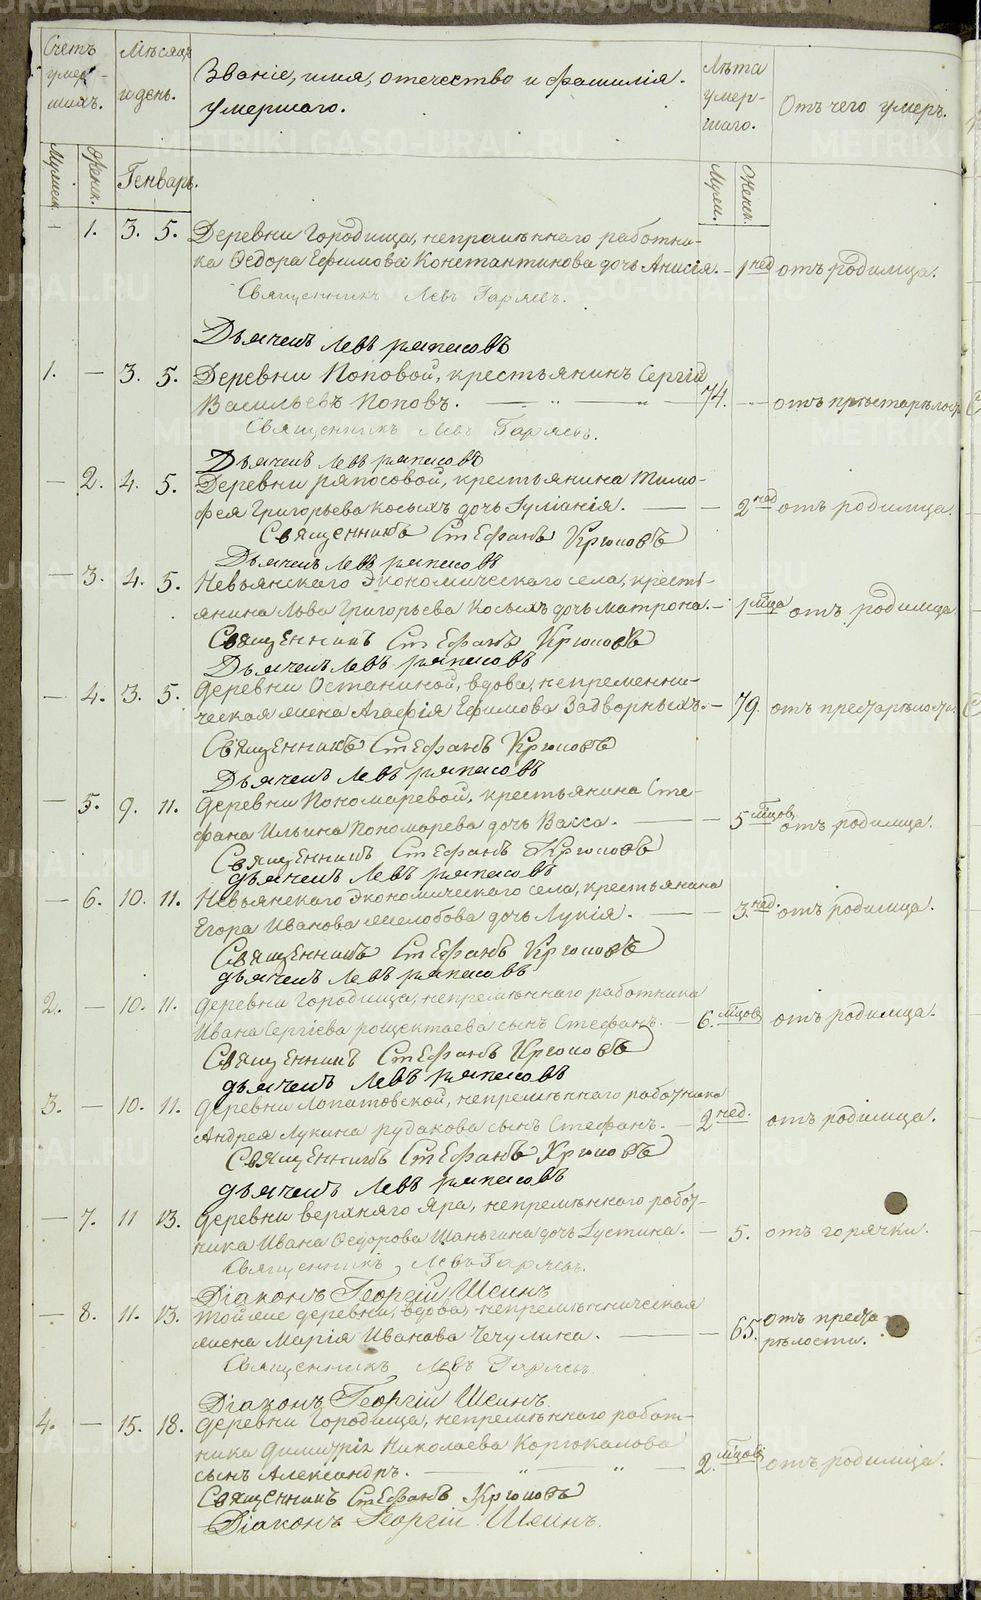 Счетъ умер-шихъ.
Мѣсяцъ и день.
Званіе, имя, отечество и фамилія умершаго.
Лѣта умер-шаго.
Отъ чего умеръ.
Мужеск. Женск. Генварь. Муж. Женск.
— 1. 3. 5. Деревни Городища, непремѣннаго работни-
ка Ѳедора Ефимова Константинова дочь Анисія. — 1 нед отъ родимца.
Священникъ Левъ Гаряевъ.
Дьячекъ Левъ Ряпасовъ
1. — 3. 5. Деревни Поповой, крестьянинъ Сергій
Васильевъ Поповъ. — „ — „ — 74. — отъ престарѣлост
Священникъ Левъ Гаряевъ.
Дьячекъ Левъ Ряпасовъ
— 2. 4. 5. Деревни Ряпосовой, крестьянина Тимо-
фея Григорьева Косыхъ дочь Іуліанія. — — 2 нед отъ родимца.
Священникъ Стефанъ Крюковъ
Дьячекъ Левъ Ряпасовъ
— 3. 4. 5. Невьянскаго Экономическаго села, кресть-
янина Льва Григорьева Косыхъ дочь Матрона. — 1 мѣца отъ родимца
Священникъ Стефанъ Крюковъ
Дьячекъ Левъ Ряпасовъ
— 4. 3. 5. Деревни Останиной, вдова, непременни-
ческая жена Агафія Ефимова Задворныхъ. — 79. отъ престарѣлости.
Священникъ Стефанъ Крюковъ
Дьячекъ Левъ Ряпасовъ
— 5. 9. 11. Деревни Пономаревой, крестьянина Сте-
фана Ильина Пономарева дочь Васса. — — 5 мѣцов отъ родимца.
Священникъ Стефанъ Крюковъ
Дьячекъ Левъ Ряпасовъ
— 6. 10. 11. Невьянскаго Экономическаго села, крестьянина
Егора Иванова дочь Лукія. — — 3. нед. отъ родимца.
Священникъ Стефанъ Крюковъ
Дьячекъ Левъ Ряпасовъ
2. — 10. 11. Деревни Городища, непремѣннаго работника
Ивана Сергіева Рощектаева сынъ Стефанъ. — 6. мѣцов отъ родимца.
Священникъ Стефанъ Крюковъ
Дьячекъ Левъ Ряпасовъ
3. — 10. 11. Деревни Лопатовской, непремѣннаго работника
Андрея Лукина Рудакова сынъ Стефанъ. — 2 нед. отъ родимца.
Священникъ Стефанъ Крюковъ
Дьячекъ Левъ Ряпасовъ
— 7. 11 13. Деревни верхняго Яра, непремѣннаго работ-
ника Ивана Ѳедорова Шаньгина дочь Іустина. — 5. отъ горячки.
Священникъ Левъ Гаряевъ.
Діаконъ Георгій Шеинъ
— 8. 11. 13. Той же деревни, вдова, непремѣнническая
жена Марія Иванова Чечулина. — — 65. отъ преста-
рѣлости.
Священникъ Левъ Гаряевъ.
Діаконъ Георгій Шеинъ.
4. — 15. 18. Деревни Городища, непремѣннаго работ-
ника Димитрія Николаева Корюкалова
сынъ Александръ. — „ — „ — 2. мѣцовъ отъ родимца.
Священникъ Стефанъ Крюковъ
Діаконъ Георгій Шеинъ.
METRIKI.GASO-URAL.RU